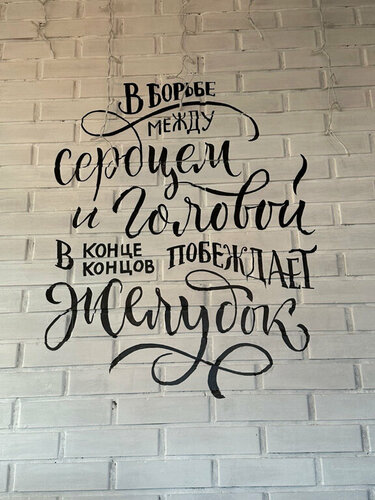 В БОРЬБЕ
МЕЖДУ
сердцем
и Головой
В КОНЦЕ КОНЦОВ ПОБЕЖДАЕТ
Желудок